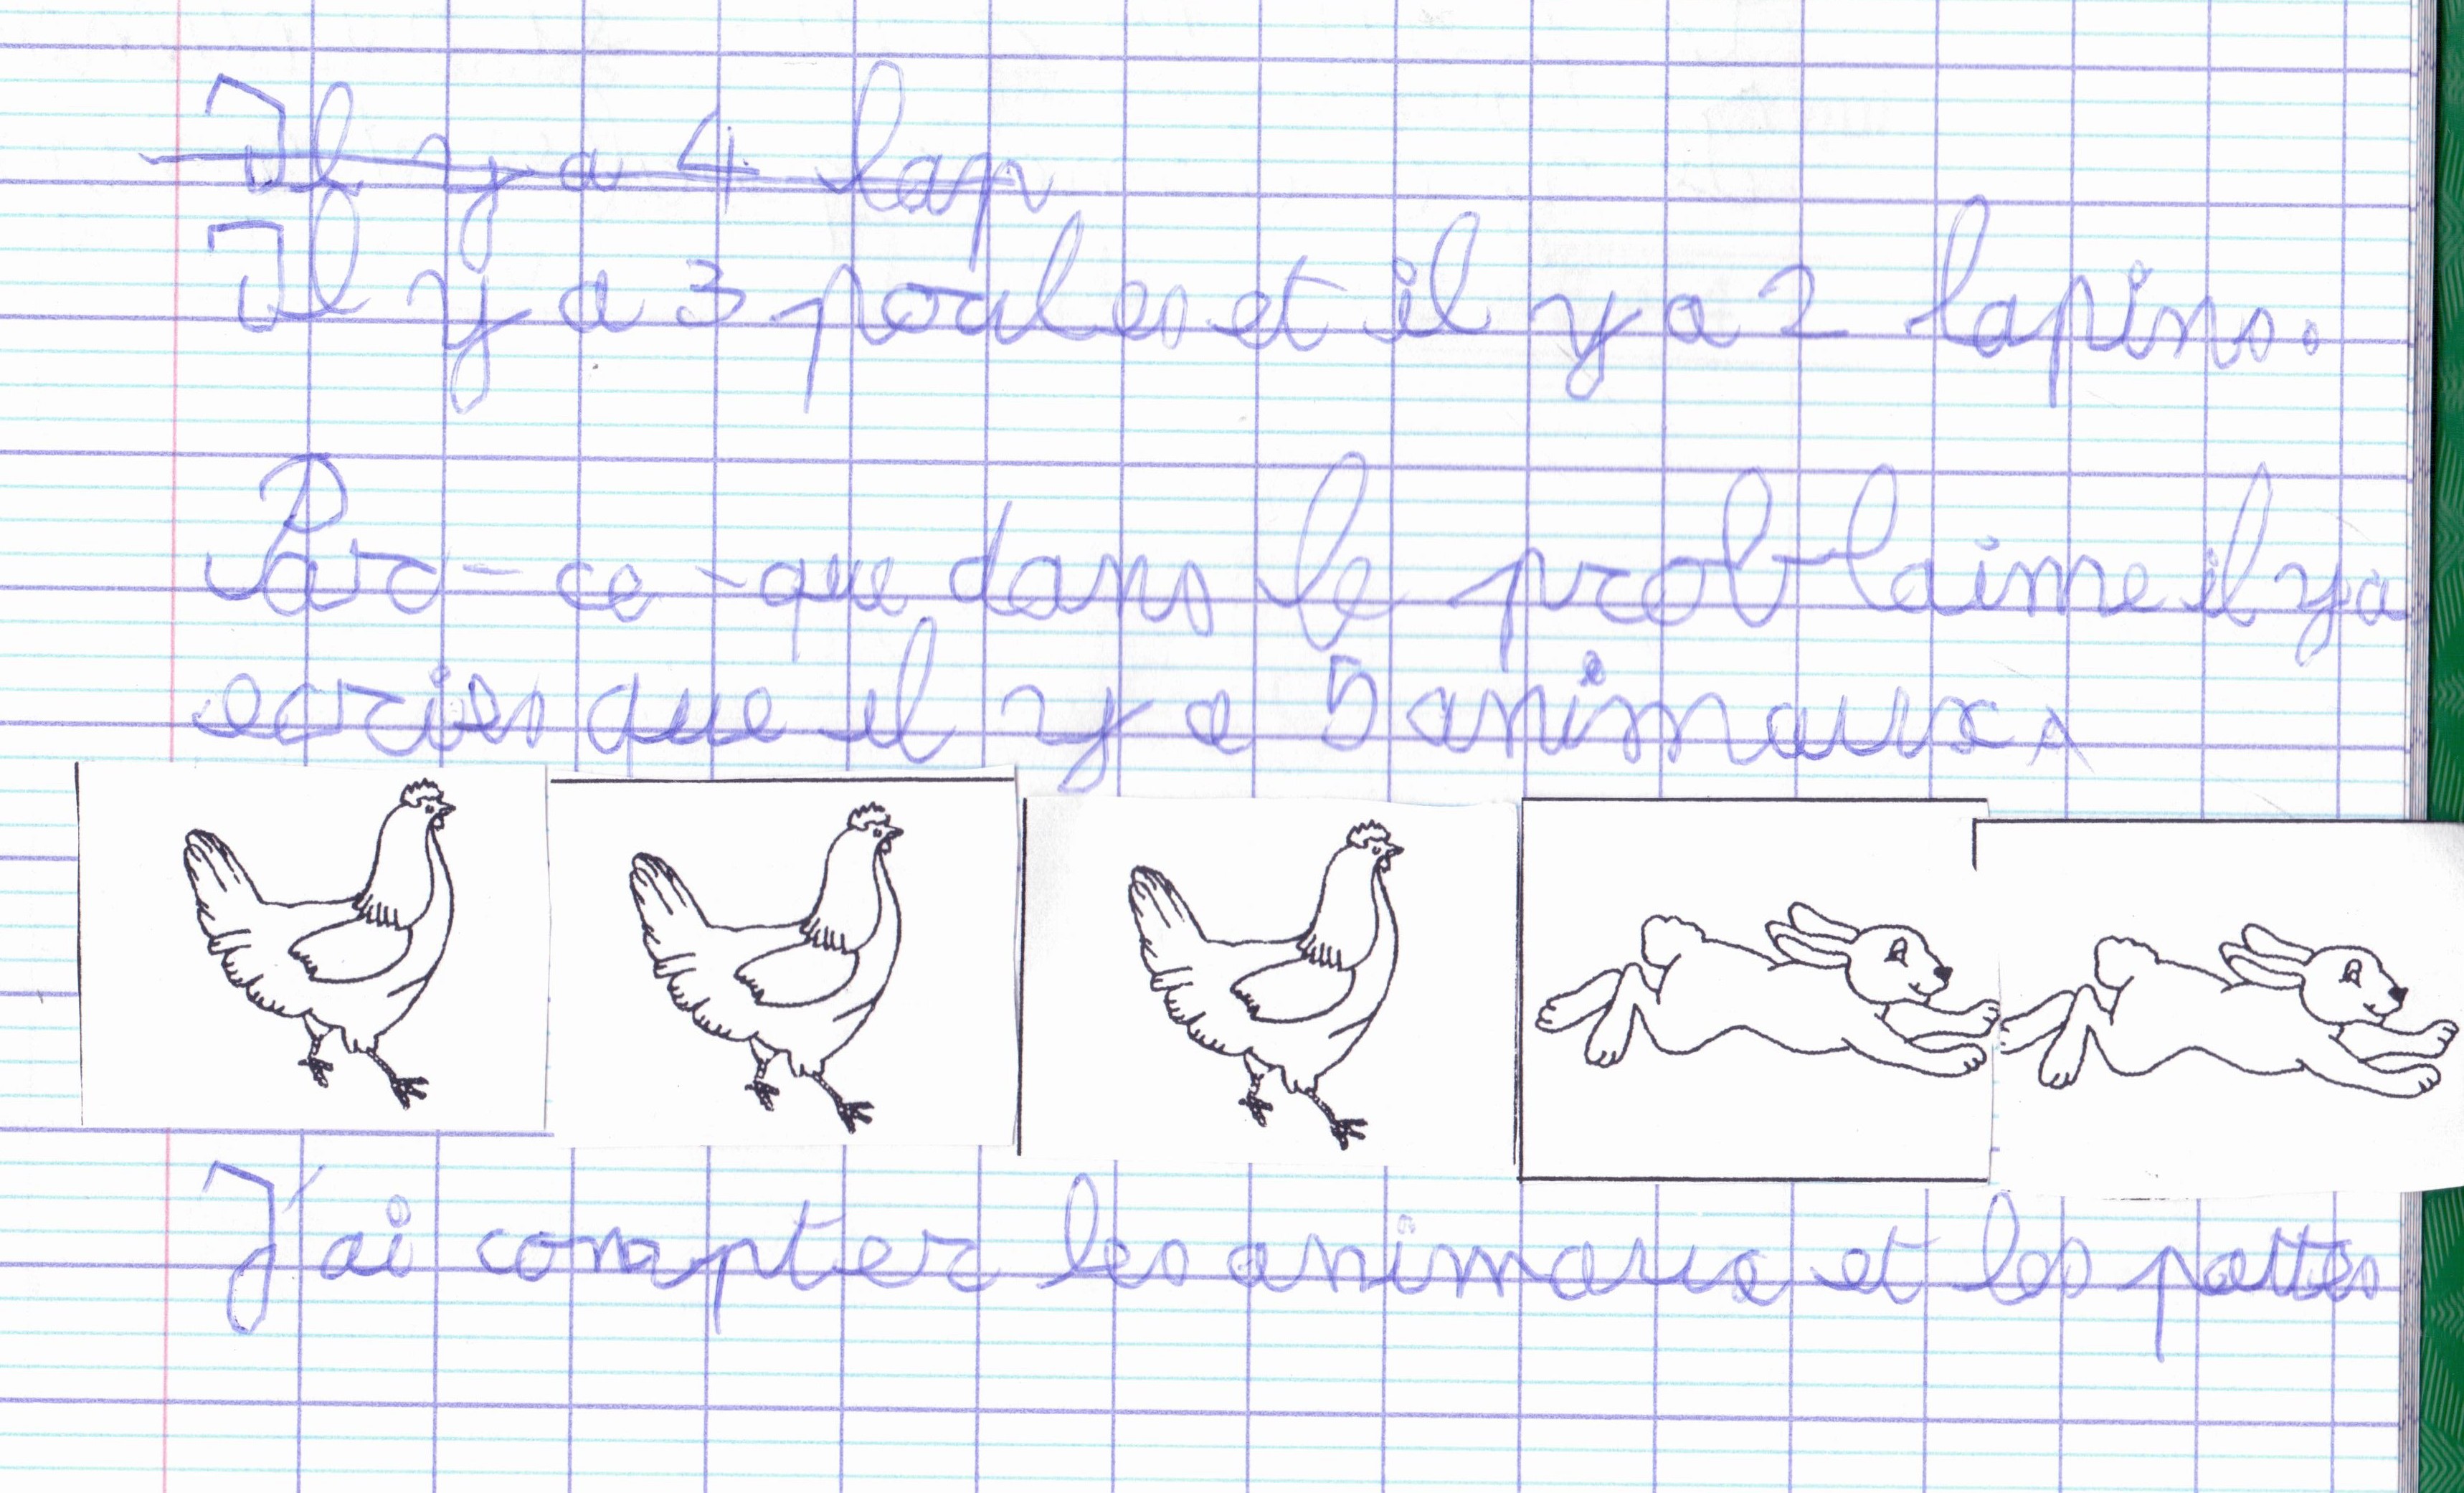 Il y a 4 lap
Il y a 3 poules et il y a 2 lapins.
Parc-ce-que dans le problaime il ya
ecries que il y a 5 animaux.
J'ai compter les animaux et les pattes